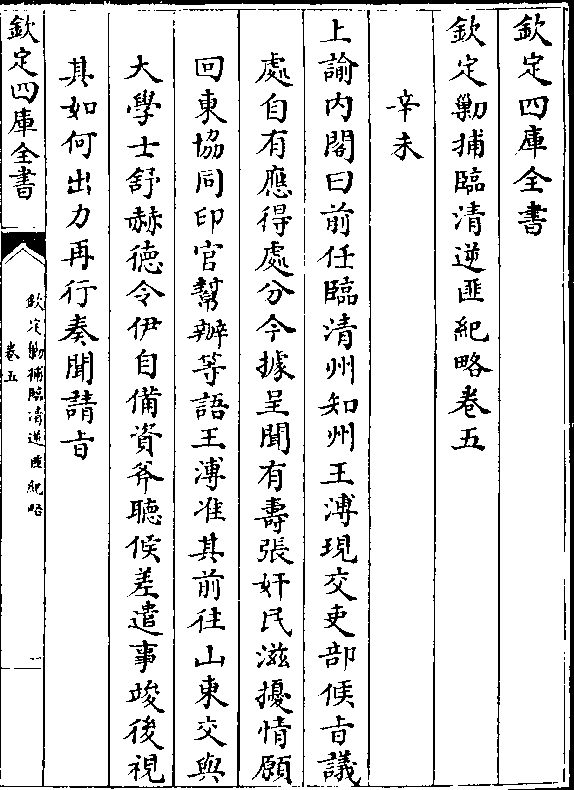 欽定四庫全書
欽定勦捕臨清逆匪紀略卷五
辛未
上諭内閣曰前任臨清州知州王溥現交吏部候㫖議
處自有應得處分今據呈聞有壽張奸民滋擾情願
回東協同印官幫辦等語王溥准其前往山東交與
大學士舒赫德令伊自備資斧聽候差遣事竣後視
其如何出力再行奏聞請㫖
欽定四庫全書
欽定勦捕臨清逆匪紀略
卷五